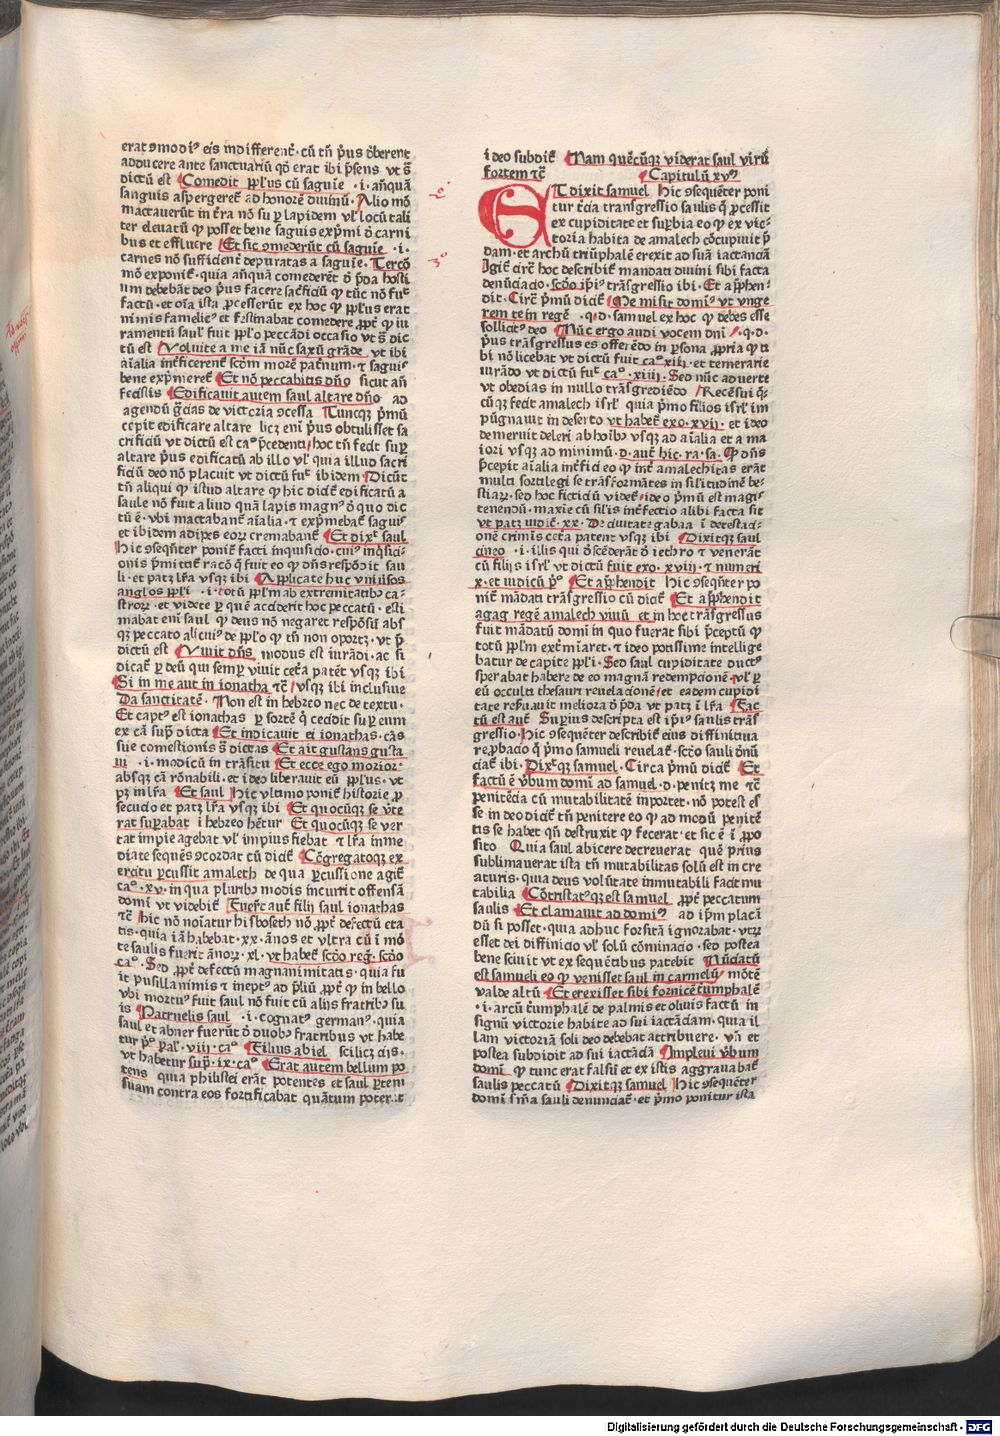 erat ꝯmodiꝰ eis indifferent̄ · cū tn̄ pͥus ꝺ̄berent
adducere ante sanctuariū qd̄ erat ibi pn̄sens vt s̄
dictū est Comedit pp̄l'us cū saguīe · i · anq̄uā
sanguis aspergeret̄ ad honorē diuinū · Alio mō
mactauerūt in tr̄a nō suꝑ lapidem vl' locū tali
ter eleuatū ꝙ posset bene saguis exp̄mi ꝺ̄ carni
bus et effluere Et sic ꝯmederūt cū saguīe · i ·
carnes nō sufficient̄ depuratas a saguīe · Tercō
mō exponit̄ · quia anq̄uā comederēt ꝺ̄ p̄da hosti
um debebāt deo pͥus facere sac̄ficiū ꝙ tūc nō fuit
factū · et oīa ista ꝓcesserūt ex hoc ꝙ pp̄l'us erat
nimis famelicꝰ et festinabat comedere ꝓpt̄ ꝙ iu
ramentū saul' fuit pp̄l'o peccādi occasio vt s̄ dic
tū est Voluite a me iā nūc saxū grāde vt ibi
aīalia int̄ficerent̄ scd̄m morē pat̄num · ⁊ saguis
bene exp̄meret̄ Et nō peccabitis dn̄o sicut an̄
fecistis Edificauit autem saul altare dn̄o ad
agendū gr̄cias de victoria ꝯcessa Tuncqꝫ pͥmū
cepit edificare altare licꝫ eni pͥus obtulisset sa
crificiū vt dictū est caº p̄cedenti hoc tn̄ fecit suꝑ
altare pͥus edificatū ab illo vl' quia illud sacri
ficiū deo nō placuit vt dictū fuit ibidem Dicūt
tn̄ aliqui ꝙ istud altare ꝙ hic dicit̄ edificatū a
saule nō fuit aliud quā lapis magnꝰ ꝺ̄ quo dic
tū ē · vbi mactabant̄ aīalia · ⁊ exp̄mebat̄ saguis
et ibidem adipes eoꝝ cremabant̄ Et dixit saul
Hic ꝯseqn̄ter ponit̄ facti inquisicio · cuiꝰ inq̄sici-
onis pͥmittit̄ racō q̄ fuit eo ꝙ dn̄s respōdit sau
li · et patꝫ lr̄a vsqꝫ ibi Applicate huc vniuersos
anglos pp̄l'i · i · totū pp̄l'm ab extremitatibꝰ ca-
stroꝝ · et videte ꝑ quē acciderit hoc peccatū · esti
mabat eni saul ꝙ deus nō negaret respōsū absqꝫ
peccato alicuiꝰ de pp̄l'o ꝙ tn̄ non oportꝫ · vt p̄
dictū est Viuit dn̄s modus est iurādi · ac si
dicat̄ ꝑ deū qui semꝑ viuit cet̄a patēt vsqꝫ ibi
Si in me aut in ionatha ⁊c̄ vsqꝫ ibi inclusiue
Da sanctitatē · Non est in hebreo nec de textu ·
Et captꝰ est ionathas ꝑ sortē q̄ cecidit suꝑ eum
ex cā supͣ dicta Et indicauit ei ionathas · cās
sue comestionis s̄ dictas Et ait gustans gusta
ui · i · modicū in trāsitu Et ecce ego morior ·
absqꝫ cā rōnabili · et ideo liberauit eū pp̄l'us · vt
pꝫ in lr̄a Et saul Hic vltimo ponit̄ historie ꝓ
secucio et patꝫ lr̄a vsqꝫ ibi Et quocūqꝫ se v̄te
rat suꝑabat i hebreo hētur Et quocūqꝫ se ver
tat impie agebat vl' impius fiebat ⁊ lr̄a inme
diate sequēs ꝯcordat cū dicit̄ Cōgregatoqꝫ ex
ercitu ꝑcussit amalech de qua ꝑcussione agit̄
caº · xv · in qua pluribꝰ modis incurrit offensā
domī vt videbit̄ Fuer̄t aut̄ filij saul ionathas
⁊c̄ Hic nō noiatur hisboseth nō ꝓpt̄ defectū eta
tis · quia iā habebat · xx · ānos et vltra cū i mō
te saulis fuerit ānoꝝ · xl · vt habet̄ scd̄o reḡ · scd̄o
caº · Sed ꝓpt̄ defectū magnanimitatis · quia fu
it pusillanimis ⁊ ineptꝰ ad p̄liū ꝓpt̄ ꝙ in bello
vbi mortuꝰ fuit saul nō fuit cū alijs fratribꝰ su
is Patruelis saul · i · cognatꝰ germanꝰ · quia
saul et abner fuerūt ꝺ̄ duobꝰ fratribus vt habe
tur pͥº pal' · viii · caº Filius abiel scilicꝫ cis ·
vt habetur supͣ · ix · caº Erat autem bellum po
tens quia philistei erāt potentes et saul ꝑtem
suam contra eos fortificabat quātum poterat
2º
3º
ideo subdit̄ Nam quēcūqꝫ viderat saul virū
fortem ⁊c̄ Capitulū xvᵐ
ET dixit samuel Hic ꝯsequēter poni
tur tc̄ia transgressio saulis q̄ ꝓcessit
ex cupiditate et suꝑbia eo ꝙ ex vic-
toria habita de amalech cōcupiuit p̄
dam · et archū triūphalē erexit ad suā iactanciā
Igit̄ circ̄ hoc describit̄ mandati diuini sibi facta
denūciacio · scd̄o ipīꝰ trāsgressio ibi · Et aꝑphen-
dit · Circ̄ pͥmū dicit̄ Me misit domīꝰ vt vnge
rem te in regē · q · d · samuel ex hoc ꝙ debes esse
sollicitꝰ deo Nūc ergo audi vocem dn̄i · q · d ·
pͥus trāsgressus es offerēdo in ꝑsona ꝓpria ꝙ ti
bi nō licebat vt dictū fuit caº xiij · et temerarie
iurādo vt dictū fuit caº · xiiij · Sed nūc aduerte
vt obedias in nullo trāsgrediēdo Recēsui q̄-
cūqꝫ fecit amalech isrl' quia pͥmo filios isrl' im
pūgnauit in deserto vt habet̄ exo · xvij · et ideo
demeruit deleri ab hoībꝰ vsqꝫ ad aīalia et a ma
iori vsqꝫ ad minimū · d · aut̄ hic · ra · sa · Ꝙ dn̄s
p̄cepit aīalia int̄fici eo ꝙ int̄ amalechitas erāt
multi sortilegi se trāsformātes in sil'itudinē be-
stiaꝝ · sed hoc ficticiū videt̄ · ideo pͥmū est magis
tenendū · maxie cū sil'is int̄fectio alibi facta sit
vt patꝫ iudic̄ · xx · De ciuitate gabaa i detestaci-
onē crimīs cet̄a patent vsqꝫ ibi Dixitqꝫ saul
cineo · i · illis qui ꝺ̄scēderāt ꝺ̄ iethro ⁊ venerāt
cū filijs isrl' vt dictū fuit exo · xviij · ⁊ numeri
x · et iudicū pͥº Et aꝑphendit Hic ꝯsequēter po
nit̄ mādati trāsgressio cū dicit̄ Et aꝑphendit
agag regē amalech viuū et in hoc trāsgressus
fuit mādatū domī in quo fuerat sibi p̄ceptū ꝙ
totū pp̄l'm ext̄miāret · ⁊ ideo potissime intellige
batur de capite pp̄l'i · Sed saul cupiditate ductꝰ
sperabat habere de eo magnā redempcionē · vl' ꝑ
eū occulti thesauri reuelacionē et eadem cupidi
tate reẜuauit meliora ꝺ̄ p̄da vt patꝫ i lr̄a Fac
tū est aut̄ Suꝑius descripta est ipīꝰ saulis trās
gressio · Hic ꝯsequēter describit̄ eius diffinitiua
reꝓbacio q̄ pͥmo samueli reuelat̄ · scd̄o sauli ꝺ̄nū
ciat̄ ibi · Dixitqꝫ samuel · Circa pͥmū dicit̄ Et
factū ē v̄bum domī ad samuel · d · penitꝫ me ⁊c̄
penitēcia cū mutabilitatē inportet · nō potest es
se in deo dicit̄ tn̄ penitere eo ꝙ ad modū penitē
tis se habet qn̄ destruxit ꝙ fecerat · et sic ē i ꝓpo
sito Quia saul abicere decreuerat quē prius
sublimauerat ista tn̄ mutabilitas solū est in cre
aturis · quia deus volūtate inmutabili facit mu
tabilia Cōtristatꝰqꝫ est samuel ꝓpt̄ peccatum
saulis Et clamauit ad domīꝰ ad ipm̄ placā
dū si posset · quia adhuc forsitā ignorabat · vtꝝ
esset dei diffinicio vl' solū cōminacio · sed postea
bene sciuit vt ex sequētibus patebit Nūciatū
est samueli eo ꝙ venisset saul in carmelū mōtē
valde altū Et erexisset sibi fornicē t̄umphalē
· i · arcū t̄umphalē de palmis et oliuis factū in
signū victorie habite ad sui iactāciam · quia il
lam victoriā soli deo debebat attribuere · vn̄ et
postea subdidit ad sui iactāciā Impleui v̄bum
domī ꝙ tunc erat falsū et ex istis aggrauabat̄
saulis peccatū Dixitqꝫ samuel Hic ꝯsequēter
domī sn̄ia sauli denunciat̄ · et pͥmo ponitur ista
Digitalisierung gefördert durch die Deutsche Forschungsgemeinschaft - DFG